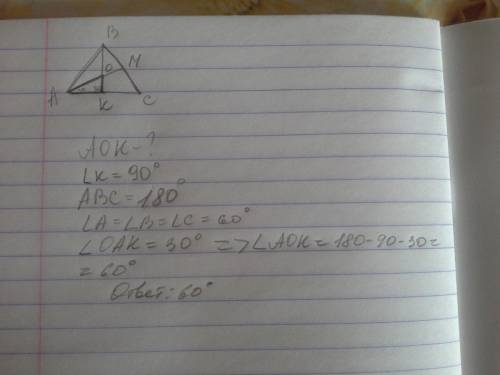 B
O M
A K C
AOK-?
∠K = 90°
ABC = 180°
∠A = ∠B = ∠C = 60°
∠OAK = 30° => ∠AOK = 180-90-30=
= 60°
Ответ: 60°